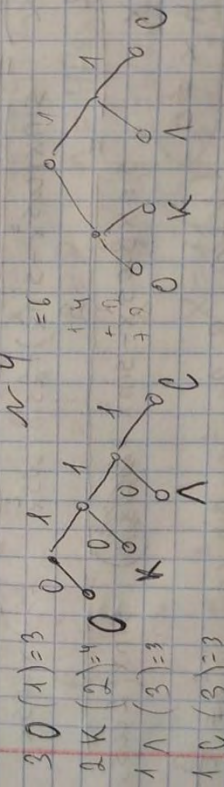 № 4
3 О (1)=3
2 К (2)=4
1 Л (3)=3
1 С (3)=3
0 1
0 1
0 1
О К Л С
=6
+4
1 1
О К Л С